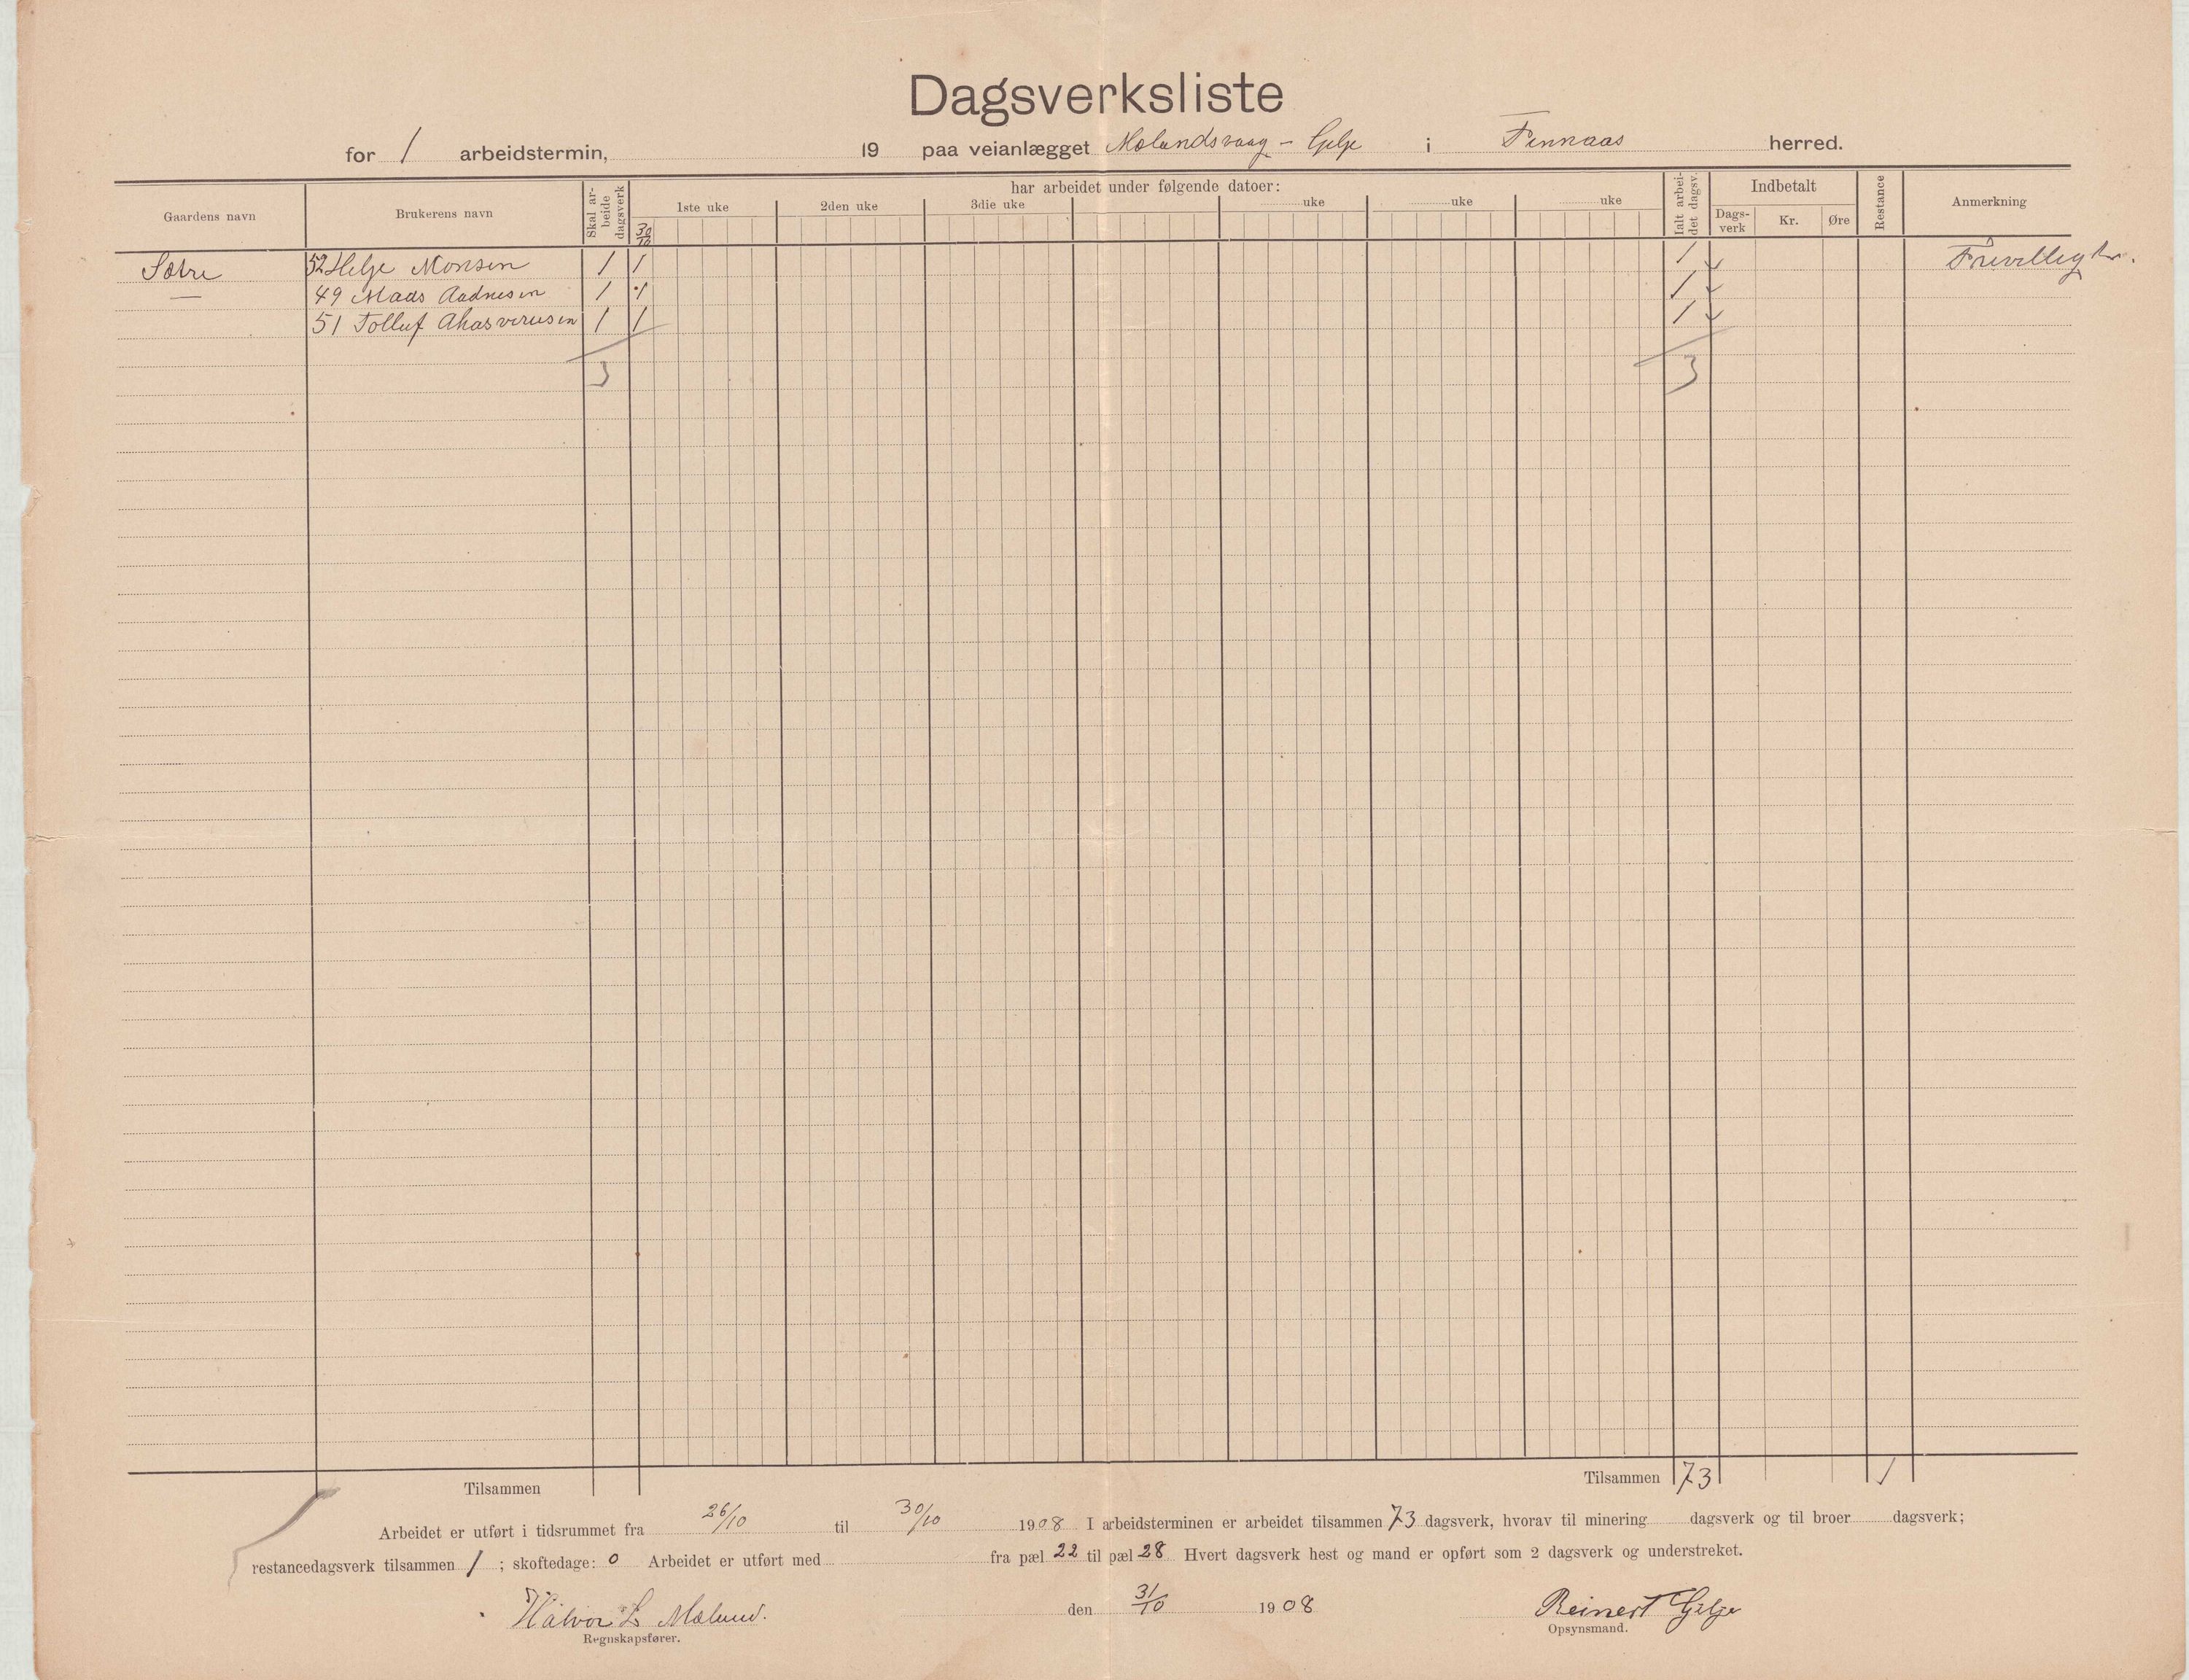 Dagsverksliste
for 1 arbeidstermin, 19 paa veianlægget Mælandsvaag - Gjelje i Finnaas herred.
Gaardens navn Brukerens navn Skal arbeide dagsverk har arbeidet under følgende datoer: Ialt arbeidet dagsv. Indbetalt Restance Anmerkning
1ste uke 2den uke 3die uke uke uke uke Dagsverk Kr. Øre
30/10
Sætre 52 Helje Monsen 1 1 1 Frivillig
— 49 Mads Aadnesen 1 1 1
51 Tolluf Ahasverusen 1 1 1
3 3
Tilsammen Tilsammen 73 1
Arbeidet er utført i tidsrummet fra 26/10 til 30/10 1908 I arbeidsterminen er arbeidet tilsammen 73 dagsverk, hvorav til minering dagsverk og til broer dagsverk;
restancedagsverk tilsammen 1 ; skoftedage: 0 Arbeidet er utført med fra pæl 22 til pæl 28 Hvert dagsverk hest og mand er opført som 2 dagsverk og understreket.
Halvor L Mælund. den 31/10 1908 Reinert Gilje
Regnskapsfører. Opsynsmand.